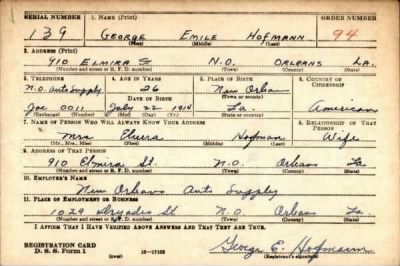 SERIAL NUMBER 1. NAME (Print) ORDER NUMBER
139 GEORGE EMILE HOFMANN 94
(First) (Middle) (Last)
2. ADDRESS (Print)
910 ELMIRA ST N.O. ORLEANS LA.
(Number and street or R. F. D. number) (Town) (County) (State)
3. TELEPHONE 4. AGE IN YEARS 5. PLACE OF BIRTH 6. COUNTRY OF CITIZENSHIP
N.O. Auto Supply 26 New Orlean
DATE OF BIRTH (Town or county)
0011 July 22 1914 La. American
(Exchange) (Number) (Mo.) (Day) (Yr.) (State or country)
7. NAME OF PERSON WHO WILL ALWAYS KNOW YOUR ADDRESS 8. RELATIONSHIP OF THAT PERSON
Mrs Hofman Wife
(Mr., Mrs., Miss) (First) (Middle) (Last)
9. ADDRESS OF THAT PERSON
910 Elmira St. N.O. Orleans La
(Number and street or R. F. D. number) (Town) (County) (State)
10. EMPLOYER'S NAME
New Orleans Auto Supply
11. PLACE OF EMPLOYMENT OR BUSINESS
1029 Dryades St N.O Orleans La
(Number and street or R. F. D. number) (Town) (County) (State)
I AFFIRM THAT I HAVE VERIFIED ABOVE ANSWERS AND THAT THEY ARE TRUE.
REGISTRATION CARD
D. S. S. Form 1 (over) 16—17105 George E. Hofmann
(Registrant's signature)